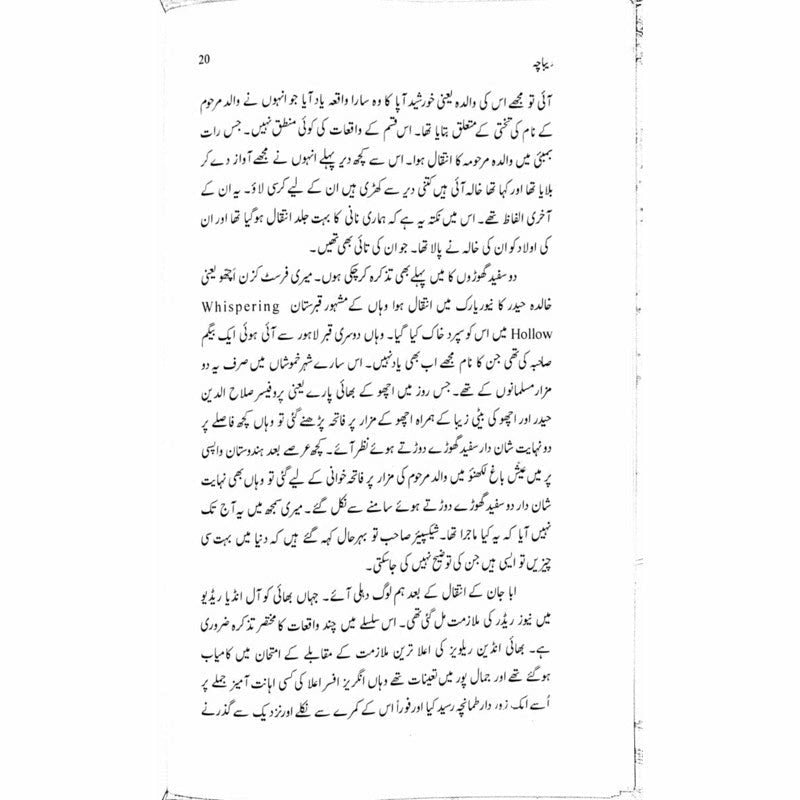 20
دیباچہ
آئی تو مجھے اس کی والدہ یعنی خورشید آپا کا وہ سارا واقعہ یاد آیا جو انہوں نے والد مرحوم
کے نام کی تختی کے متعلق بتایا تھا۔ اس قسم کے واقعات کی کوئی منطق نہیں۔ جس رات
بمبئی میں والدہ مرحومہ کا انتقال ہوا۔ اس سے کچھ دیر پہلے انہوں نے مجھے آواز دے کر
بلایا تھا اور کہا تھا خالہ آئی ہیں کتنی دیر سے کھڑی ہیں ان کے لیے کرسی لاؤ۔ یہ ان کے
آخری الفاظ تھے۔ اس میں نکتہ یہ ہے کہ ہماری نانی کا بہت جلد انتقال ہوگیا تھا اور ان
کی اولاد کو ان کی خالہ نے پالا تھا۔ جو ان کی تائی بھی تھیں۔
دو سفید گھوڑوں کا میں پہلے بھی تذکرہ کرچکی ہوں۔ میری فرسٹ کزن اچھو یعنی
خالدہ حیدر کا نیویارک میں انتقال ہوا وہاں کے مشہور قبرستان Whispering
Hollow میں اس کو سپرد خاک کیا گیا۔ وہاں دوسری قبر لاہور سے آئی ہوئی ایک بیگم
صاحبہ کی تھی جن کا نام مجھے اب بھی یاد نہیں۔ اس سارے شہر خموشاں میں صرف یہ دو
مزار مسلمانوں کے تھے۔ جس روز میں اچھو کے بھائی پارے یعنی پروفیسر صلاح الدین
حیدر اور اچھو کی بیٹی زیبا کے ہمراہ اچھو کے مزار پر فاتحہ پڑھنے گئی تو وہاں کچھ فاصلے پر
دو نہایت شان دار سفید گھوڑے دوڑتے ہوئے نظر آئے۔ کچھ عرصے بعد ہندوستان واپسی
پر میں عیش باغ لکھنؤ میں والد مرحوم کی مزار پر فاتحہ خوانی کے لیے گئی تو وہاں بھی نہایت
شان دار دو سفید گھوڑے دوڑتے ہوئے سامنے سے نکل گئے۔ میری سمجھ میں یہ آج تک
نہیں آیا کہ یہ کیا ماجرا تھا۔ شیکسپیئر صاحب تو بہرحال کہہ گئے ہیں کہ دنیا میں بہت سی
چیزیں تو ایسی ہیں جن کی توضیح نہیں کی جاسکتی۔
ابا جان کے انتقال کے بعد ہم لوگ دہلی آئے۔ جہاں بھائی کو آل انڈیا ریڈیو
میں نیوز ریڈر کی ملازمت مل گئی تھی۔ اس سلسلے میں چند واقعات کا مختصر تذکرہ ضروری
ہے۔ بھائی انڈین ریلویز کی اعلا ترین ملازمت کے مقابلے کے امتحان میں کامیاب
ہوگئے تھے اور جمال پور میں تعینات تھے وہاں انگریز افسر اعلا کی کسی اہانت آمیز جملے پر
اُسے ایک زور دار طمانچہ رسید کیا اور فوراً اس کے کمرے سے نکلے اور نزدیک سے گذرنے